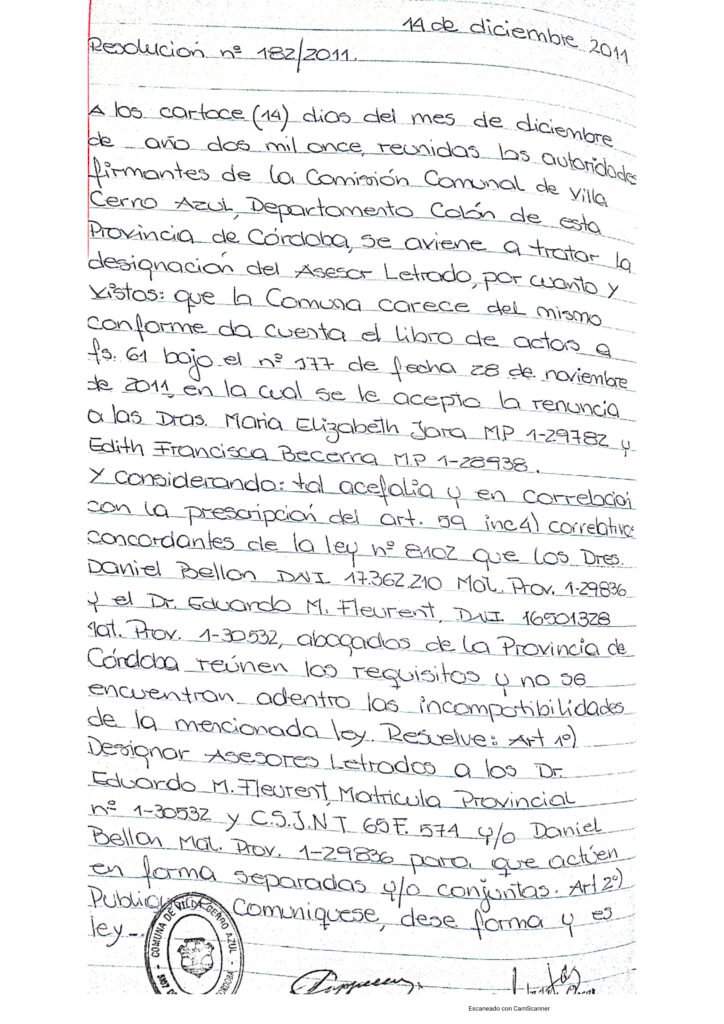 14 de diciembre 2011
Resolucion nº 182/2011.
A los cartoce (14) dias del mes de diciembre
de año dos mil once, reunidas las autoridades
firmantes de la Comisión Comunal de Villa
Cerro Azul, Departamento Colón de esta
Provincia de Córdoba, se aviene a tratar la
designación del Asesor Letrado, por cuanto y
Vistos: que la Comuna carece del mismo
conforme da cuenta el libro de actas a
fs. 61 bajo el nº 177 de fecha 28 de noviembre
de 2011, en la cual se le acepto la renuncia
a las Dras. Maria Elizabeth Jara MP 1-29782 y
Edith Francisca Becerra MP 1-28938.
Y considerando: tal acefalia y en correlacion
con la prescripcion del art. 59 inc 4) correlativo
concordantes de la ley nº 8102 que los Dres.
Daniel Bellon DNI 17.362.210 Mat. Prov. 1-29836
y el Dr. Eduardo M. Fleurent, DNI 16501328
Mat. Prov. 1-30532, abogados de la Provincia de
Córdoba reúnen los requisitos y no se
encuentran adentro las incompatibilidades
de la mencionada ley. Resuelve: Art 1º)
Designar Asesores Letrados a los Dr.
Eduardo M. Fleurent, Matricula Provincial
nº 1-30532 y C.S.J.N T 65 F. 574 y/o Daniel
Bellon Mat. Prov. 1-29836 para que actúen
en forma separadas y/o conjuntas. Art 2º)
Comuniquese, dese forma y es
ley.-
COMUNA DE VILLA CERRO AZUL
Escaneado con CamScanner